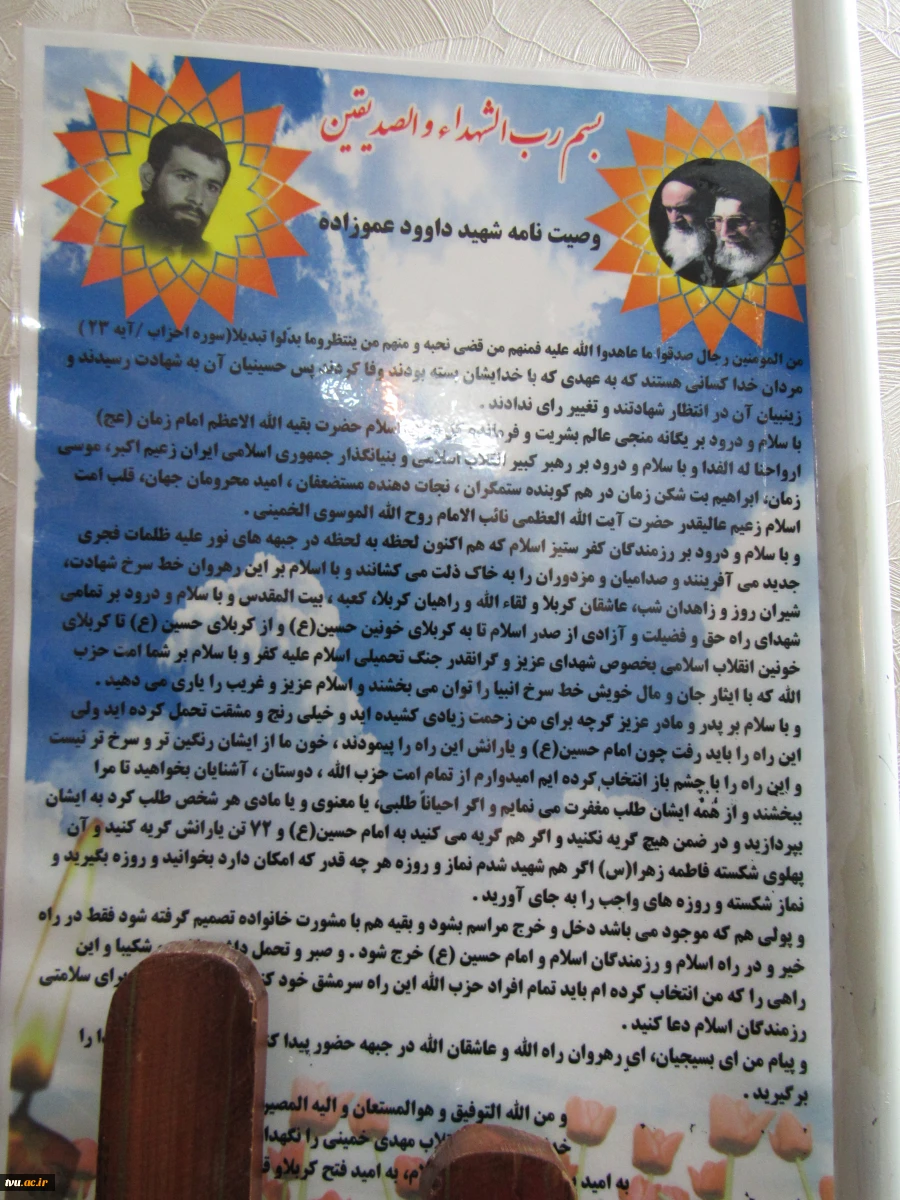 بسم رب الشهداء و الصدیقین
وصیت نامه شهید داوود عموزاده
من المومنین رجال صدقوا ما عاهدوا الله علیه فمنهم من قضی نحبه و منهم من ینتظروما بدّلوا تبدیلا(سوره احزاب /آیه ۲۳)
مردان خدا کسانی هستند که به عهدی که با خدایشان بسته بودند وفا کردند پس حسینیان آن به شهادت رسیدند و
زینبیان آن در انتظار شهادتند و تغییر رای ندادند .
با سلام و درود بر یگانه منجی عالم بشریت و اسلام حضرت بقیه الله الاعظم امام زمان (عج)
ارواحنا له الفدا و با سلام و درود بر رهبر کبیر انقلاب اسلامی و بنیانگذار جمهوری اسلامی ایران زعیم اکبر، موسی
زمان، ابراهیم بت شکن زمان در هم کوبنده ستمگران ، نجات دهنده مستضعفان ، امید محرومان جهان، قلب امت
اسلام زعیم عالیقدر حضرت آیت الله العظمی نائب الامام روح الله الموسوی الخمینی .
و با سلام و درود بر رزمندگان کفر ستیز اسلام که هم اکنون لحظه به لحظه در جبهه های نور علیه ظلمات فجری
جدید می آفرینند و صدامیان و مزدوران را به خاک ذلت می کشانند و با اسلام بر این رهروان خط سرخ شهادت،
شیران روز و زاهدان شب، عاشقان کربلا و لقاء الله و راهیان کربلا، کعبه ، بیت المقدس و با سلام و درود بر تمامی
شهدای راه حق و فضیلت و آزادی از صدر اسلام تا به کربلای خونین حسین(ع) و از کربلای حسین (ع) تا کربلای
خونین انقلاب اسلامی بخصوص شهدای عزیز و گرانقدر جنگ تحمیلی اسلام علیه کفر و با سلام بر شما امت حزب
الله که با ایثار جان و مال خویش خط سرخ انبیا را توان می بخشند و اسلام عزیز و غریب را یاری می دهید .
و با سلام بر پدر و مادر عزیز گرچه برای من زحمت زیادی کشیده اید و خیلی رنج و مشقت تحمل کرده اید ولی
این راه را باید رفت چون امام حسین(ع) و یارانش این راه را پیمودند ، خون ما از ایشان رنگین تر و سرخ تر نیست
و این راه را با چشم باز انتخاب کرده ایم امیدوارم از تمام امت حزب الله ، دوستان ، آشنایان بخواهید تا مرا
ببخشند و از همه ایشان طلب مغفرت می نمایم و اگر احیاناً طلبی، یا معنوی و یا مادی هر شخص طلب کرد به ایشان
بپردازید و در ضمن هیچ گریه نکنید و اگر هم گریه می کنید به امام حسین(ع) و ۷۲ تن یارانش گریه کنید و آن
پهلوی شکسته فاطمه زهرا(س) اگر هم شهید شدم نماز و روزه هر چه قدر که امکان دارد بخوانید و روزه بگیرید و
نماز شکسته و روزه های واجب را به جای آورید .
و پولی هم که موجود می باشد دخل و خرج مراسم بشود و بقیه هم با مشورت خانواده تصمیم گرفته شود فقط در راه
خیر و در راه اسلام و رزمندگان اسلام و امام حسین (ع) خرج شود . و صبر و تحمل شکیبا و این
راهی را که من انتخاب کرده ام باید تمام افراد حزب الله این راه سرمشق خود برای سلامتی
رزمندگان اسلام دعا کنید .
و پیام من ای بسیجیان، ای رهروان راه الله و عاشقان الله در جبهه حضور پیدا را
برگیرید .
و من الله التوفیق و هوالمستعان و الیه المصیر
مهدی خمینی را
به امید به امید فتح کربلا و
tvu.ac.ir